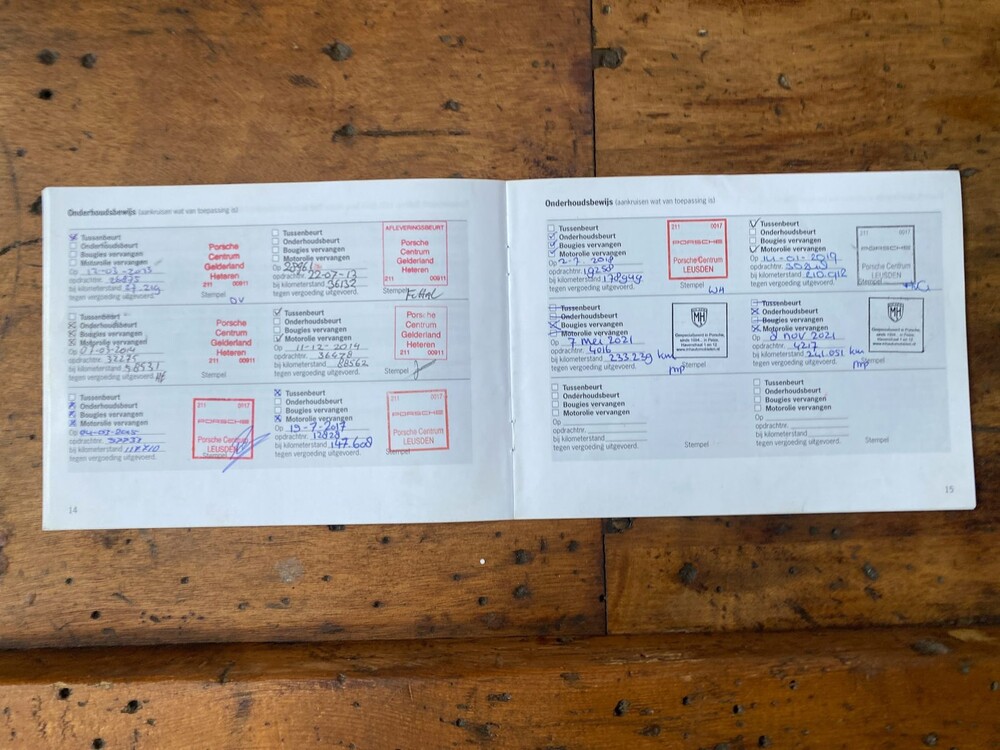 Onderhoudsbewijs (aankruisen wat van toepassing is)
Tussenbeurt
Onderhoudsbeurt
Bougies vervangen
Motorolie vervangen
Op 12-03-2013
opdrachtnr. 26875
bij kilometerstand 27.219
tegen vergoeding uitgevoerd.
Porsche
Centrum
Gelderland
Heteren
211 00911
Stempel
DV
Tussenbeurt
Onderhoudsbeurt
Bougies vervangen
Motorolie vervangen
Op
opdrachtnr. 22-07-13
bij kilometerstand 36132
tegen vergoeding uitgevoerd.
AFLEVERINGSBEURT
Porsche
Centrum
Gelderland
Heteren
211 00911
Stempel
Tussenbeurt
Onderhoudsbeurt
Bougies vervangen
Motorolie vervangen
Op
opdrachtnr. 32275
bij kilometerstand 58531
tegen vergoeding uitgevoerd.
Porsche
Centrum
Gelderland
Heteren
211 00911
Stempel
Tussenbeurt
Onderhoudsbeurt
Bougies vervangen
Motorolie vervangen
Op 11-12-2014
opdrachtnr. 36478
bij kilometerstand 88562
tegen vergoeding uitgevoerd.
Porsche
Centrum
Gelderland
Heteren
211 00911
Stempel
Tussenbeurt
Onderhoudsbeurt
Bougies vervangen
Motorolie vervangen
Op
opdrachtnr.
bij kilometerstand 117710
tegen vergoeding uitgevoerd.
211 0017
PORSCHE
Porsche Centrum
LEUSDEN
Stempel
Tussenbeurt
Onderhoudsbeurt
Bougies vervangen
Motorolie vervangen
Op 19-7-2017
opdrachtnr.
bij kilometerstand 147.609
tegen vergoeding uitgevoerd.
211 0017
PORSCHE
Porsche Centrum
LEUSDEN
Stempel
14
Onderhoudsbewijs (aankruisen wat van toepassing is)
Tussenbeurt
Onderhoudsbeurt
Bougies vervangen
Motorolie vervangen
Op 2-7-2018
opdrachtnr. 19258
bij kilometerstand 178949
tegen vergoeding uitgevoerd.
211 0017
PORSCHE
Porsche Centrum
LEUSDEN
Stempel
WH
Tussenbeurt
Onderhoudsbeurt
Bougies vervangen
Motorolie vervangen
Op 14-01-2019
opdrachtnr.
bij kilometerstand 210.912
tegen vergoeding uitgevoerd.
211 0017
PORSCHE
Porsche Centrum
LEUSDEN
Stempel
Tussenbeurt
Onderhoudsbeurt
Bougies vervangen
Motorolie vervangen
Op 7 mei 2021
opdrachtnr. 4016
bij kilometerstand 233.239 km
tegen vergoeding uitgevoerd.
MH
Gespecialiseerd in Porsche,
Stempel
mp
Tussenbeurt
Onderhoudsbeurt
Bougies vervangen
Motorolie vervangen
Op 8 nov 2021
opdrachtnr. 4217
bij kilometerstand 241.051 km
tegen vergoeding uitgevoerd.
MH
Gespecialiseerd in Porsche,
Stempel
mp
Tussenbeurt
Onderhoudsbeurt
Bougies vervangen
Motorolie vervangen
Op
opdrachtnr.
bij kilometerstand
tegen vergoeding uitgevoerd.
Stempel
Tussenbeurt
Onderhoudsbeurt
Bougies vervangen
Motorolie vervangen
Op
opdrachtnr.
bij kilometerstand
tegen vergoeding uitgevoerd.
Stempel
15